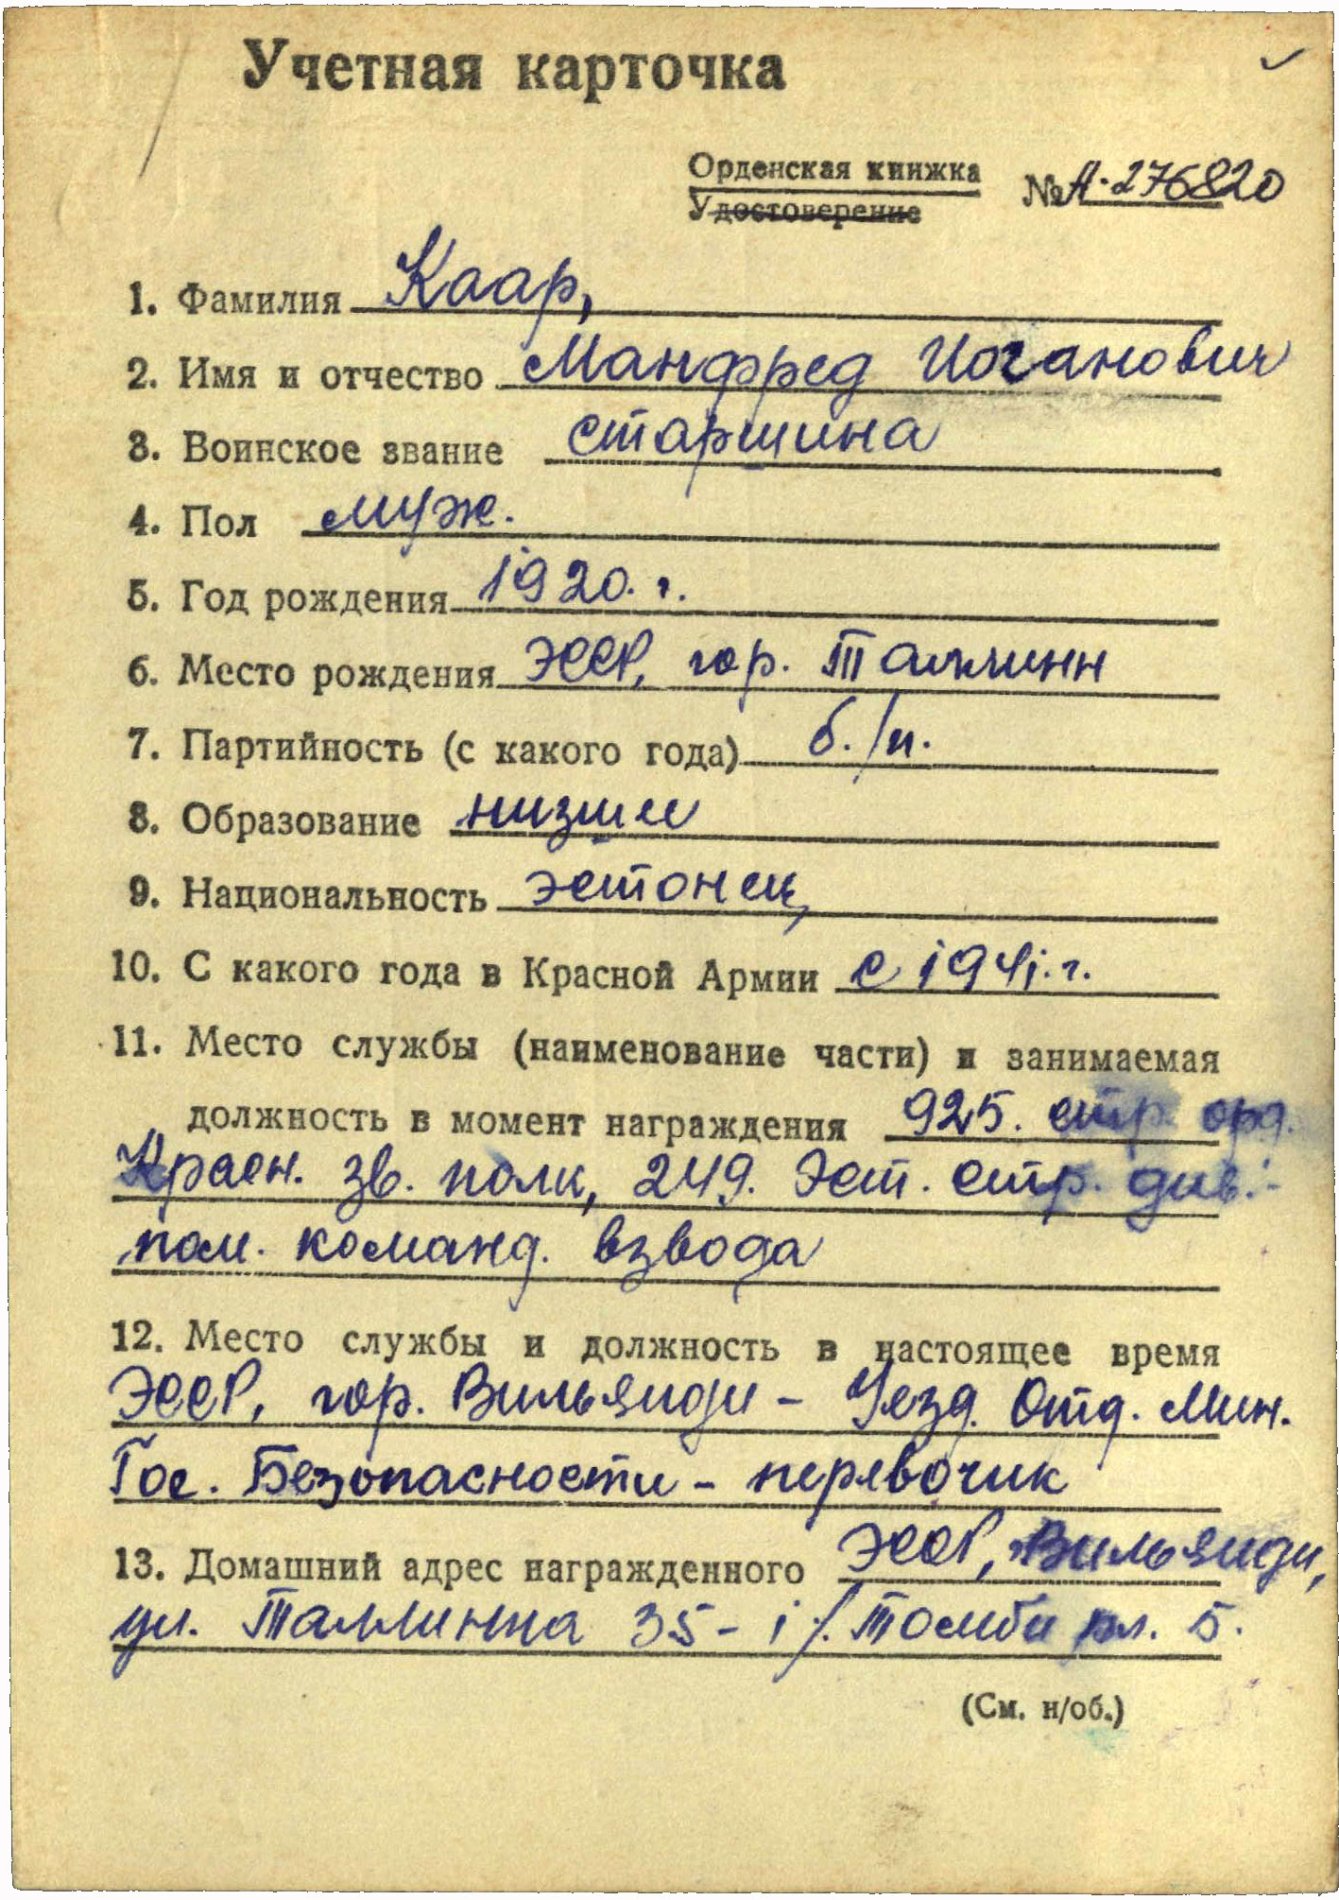 Учетная карточка
Орденская книжка
Удостоверение
№ А-276820
1. Фамилия Каар,
2. Имя и отчество Манфред Иоганович
3. Воинское звание старшина
4. Пол муж.
5. Год рождения 1920. г.
6. Место рождения ЭССР, гор. Таллинн
7. Партийность (с какого года) б./п.
8. Образование низшее
9. Национальность эстонец
10. С какого года в Красной Армии с 1941. г.
11. Место службы (наименование части) и занимаемая
должность в момент награждения 925. стр. орд.
Красн. зв. полк, 249. Эст. стр. див.
пом. команд. взвода
12. Место службы и должность в настоящее время
ЭССР, гор. Вильянди - Уезд. Отд. Мин.
Гос. Безопасности - перевочик
13. Домашний адрес награжденного ЭССР, Вильянди,
ул. Таллинна 35-1 /. Томби пл. 5.
(См. н/об.)